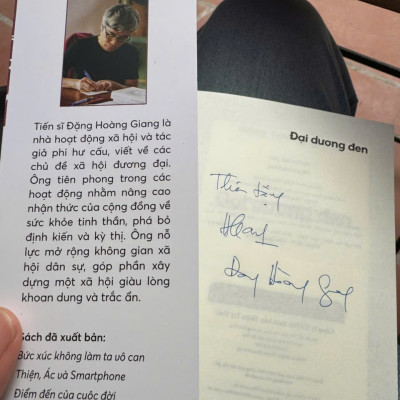 Tiến sĩ Đặng Hoàng Giang là
nhà hoạt động xã hội và tác
giả phi hư cấu, viết về các
chủ đề xã hội đương đại.
Ông tiên phong trong các
hoạt động nhằm nâng cao
nhận thức của cộng đồng về
sức khỏe tinh thần, phá bỏ
định kiến và kỳ thị. Ông nỗ
lực mở rộng không gian xã
hội dân sự, góp phần xây
dựng một xã hội giàu lòng
khoan dung và trắc ẩn.
Sách đã xuất bản:
Bức xúc không làm ta vô can
Thiện, Ác và Smartphone
Điểm đến của cuộc đời
Đại dương đen
Thân tặng
Đặng Hoàng Giang